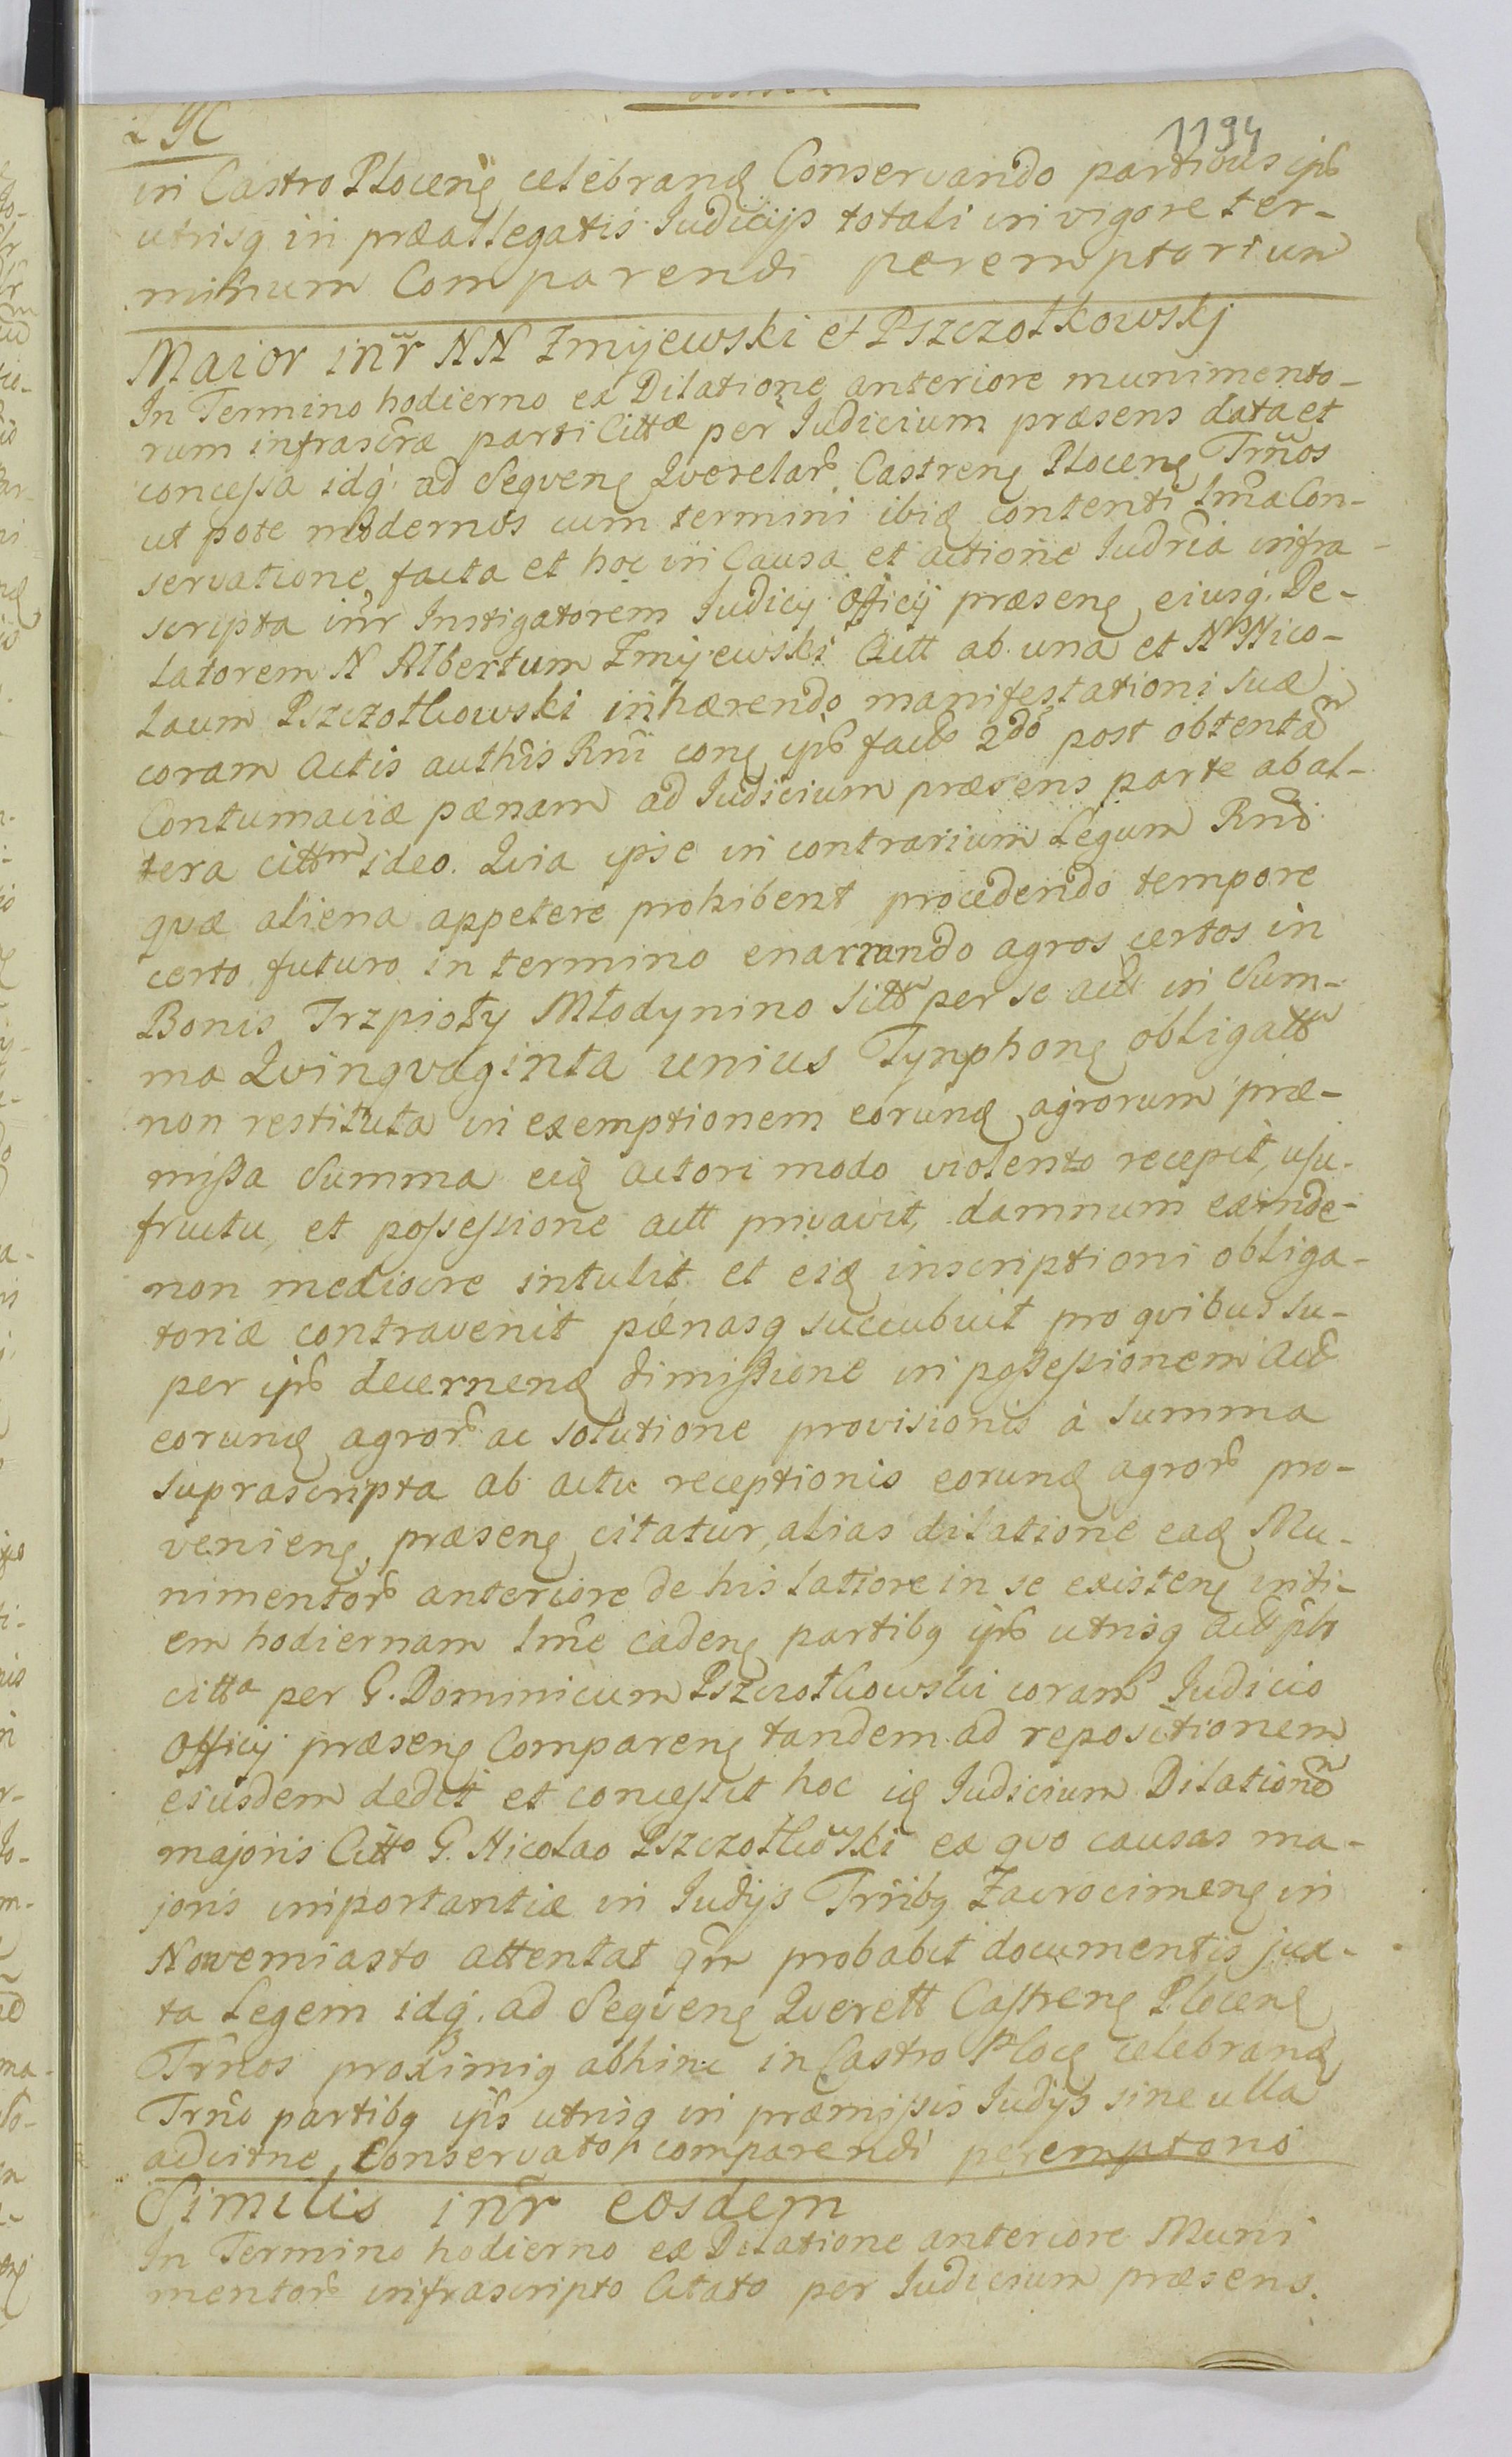 1194
in Castro Ploceñ celebrand Conservando partibus ipis
utrisq in præallegatis Judicijs totali in vigore ter-
minum Comparendi peremptorium
Maior inr NN Zmijewski et Pszczołkowskj
In Termino hodierno ex Dilatione anteriore munimento-
rum infrascræ parti Cittæ per Judicium præsens data et
concessa idq. ad Sequen Querelar Castren Plocen Trnos
ut pote modernos cum termini ibid contenti lma Con-
servatione facta et hoc in Causa et actione Judria infra-
scripta inr Instigatorem Judicij Officij præsen eiusq. De-
latorem N Albertum Zmijewski Actt ab una et N Nico-
laum Pszczołkowski inhærendo manifestationi suæ
coram Actis authis Rni con ips fact 2do post obtentam
Contumaciæ pænam ad Judicium præsens parte ab al-
tera cittm ideo. Quia ipse in contrarium Legum Rni
quæ aliena appetere prohibent procedendo tempore
certo futuro in termino enarrando agros certos in
Bonis Trzpioły Młodynino sitt per se actt in Sum-
ma Quinquaginta unius Tynphon obligatt
non restituta in exemptionem eorund agrorum præ-
missa Summa eid actori modo violento recepit, usu-
fructu, et possessione actt privavit, damnum exinde
non mediocre intulit et eid inscriptioni obliga-
toriæ contravenit pænasq succubuit pro quibus su-
per ips decernend dimissione in possessionem Act
eorund agror ac solutione provisionis à summa
suprascripta ab actu receptionis eorund agror pro-
venien, præsen citatur, alias dilatione ead Mu-
nimentor anteriore de his latiore in se existen in di-
em hodiernam lme caden partibq ips utrisq actt phr
citta per G. Dominicum Pszczołkowski coram Judicio
Officij præsen Comparen tandem ad repositionem
eiusdem dedit et concessit hoc id Judicium Dilationem
majoris Citto G. Nicolao Pszczołkowski ex quo causas ma-
joris importantiæ in Judijs Trribq Zacrocimen in
Nowemiasto attentat qm probabit documentis jux-
ta Legem idq. ad Sequen Querell Castren Plocen
Trnos proximiq abhinc in Castro Ploc celebrand
Trno partibq ips utrisq in præmissis Judijs sine ulla
adcitne, Conservato comparendi peremptorio
Similis inr eosdem
In Termino hodierno ex Dilatione anteriore Muni
mentor infrascripto Citato per Judicium præsens.